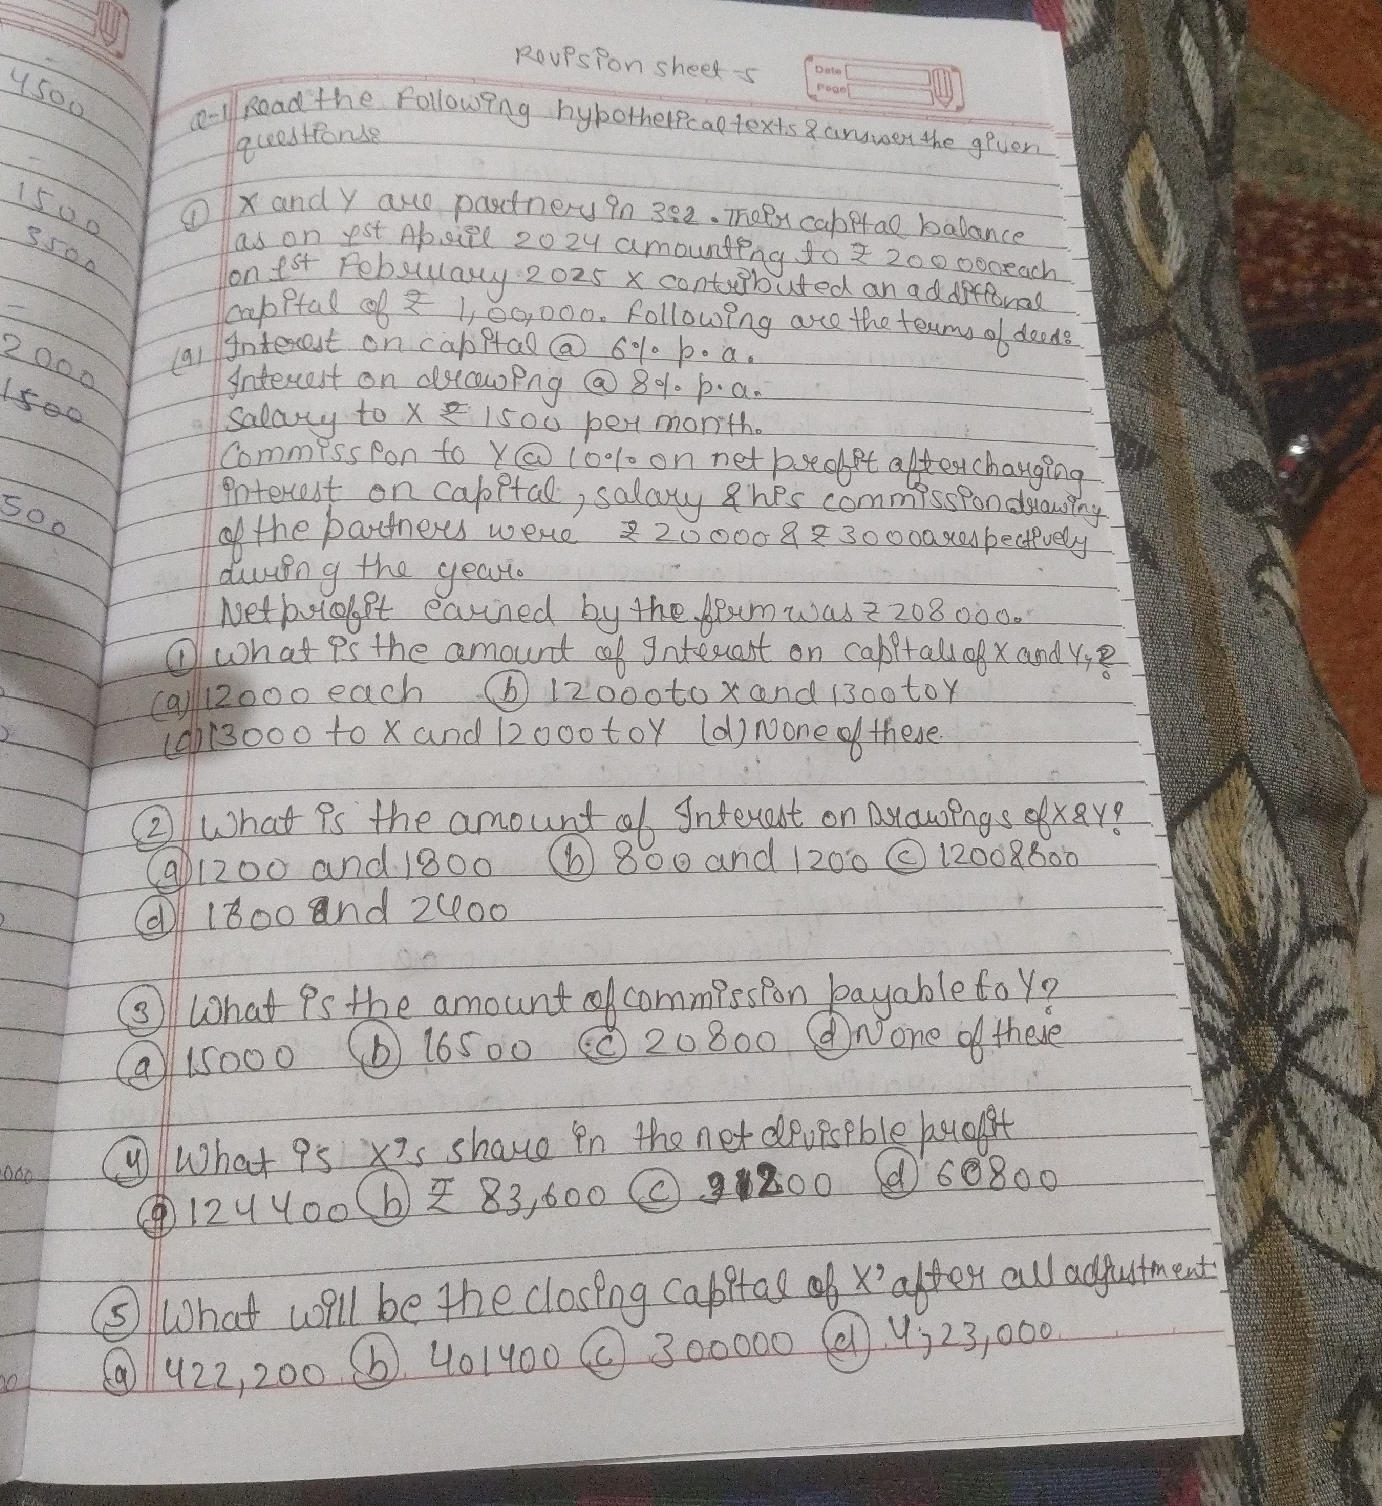 4500
1500
3500
2000
1500
500
000
Revision sheet-5
Date
Page
Q-1 Read the following hypothetical texts & answer the given
questions
① X and Y are partners in 3:2. Their capital balance
as on 1st April 2024 amounting to ₹ 200000 each
on 1st February 2025 X contributed an additional
capital of ₹ 1,00,000. Following are the terms of deeds
(a) Interest on capital @ 6% p.a.
Interest on drawing @ 8% p.a.
Salary to X ₹ 1500 per month.
Commission to Y @ 10% on net profit after charging
interest on capital, salary & his commission drawing
of the partners were ₹ 20000 & ₹ 30000 respectively
during the year.
Net profit earned by the firm was ₹ 208000.
① What is the amount of Interest on capitals of X and Y,?
(a) 12000 each (b) 12000 to X and 1300 to Y
(c) 13000 to X and 12000 to Y (d) None of these.
② What is the amount of Interest on Drawings of X & Y?
(a) 1200 and 1800 (b) 800 and 1200 (c) 1200 & 800
(d) 1800 and 2400
③ What is the amount of commission payable to Y?
(a) 15000 (b) 16500 (c) 20800 (d) None of these
④ What is X's share in the net devisible profit
(a) 124400 (b) ₹ 83,600 (c) 91200 (d) 60800
⑤ What will be the closing capital of X' after all adjustment
(a) 422,200 (b) 401400 (c) 300000 (d) 4,23,000